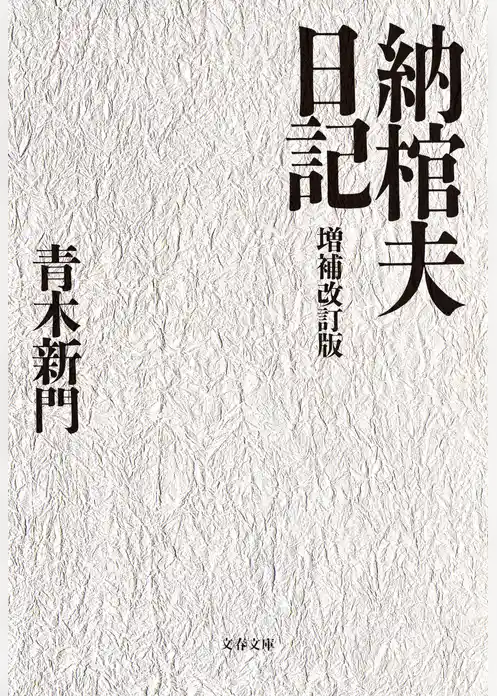 納棺夫
日記
増補改訂版
青木新門
文春文庫